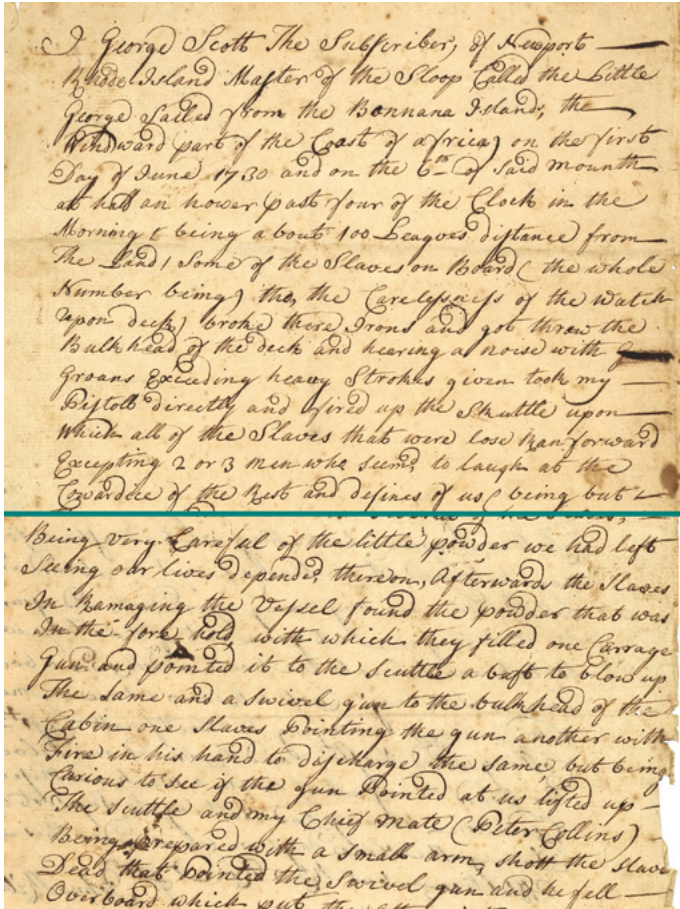 I George Scott The Subscriber, of Newport
Rhode Island Master of the Sloop Called the Little
George Sailed from the Bonnana Island, the
Windward part of the Coast of africa) on the first
Day of June 1730 and on the 6th of Said mounth
at half an hower past four of the Clock in the
Morning & being about 100 Leagues distance from
The Land, Some of the Slaves on Board (the whole
Number being) thro the Carelessness of the Watch
upon deck) broke there Irons and got threw the
Bulkhead of the deck and hearing a noise with
Groans Exceeding heavy Strokes given took my
Pistoll directly and fired up the Skuttle upon
Which all of the Slaves that were lose Ran forward
Excepting 2 or 3 men who seemd to laugh at the
Cowardice of the Rest and defines of us being but
Being very Careful of the little powder we had left
Seeing our lives depended thereon, Afterwards the Slaves
In Ramaging the Vessel found the powder that was
In the fore hold, with which they filled one Carrage
Gun and pointed it to the Scuttle abaft to blow up
The Same and a Swivel gun to the bulkhead of the
Cabin one Slaves Pointing the gun another with
Fire in his hand to discharge the same but being
Carious to see if the gun Pointed at us lifted up
The Scuttle and my Chief Mate (Peter Collins)
Being prepared with a small arm, shott the Slave
Dead that pointed the Swivel gun and he fell
Overboard which put the